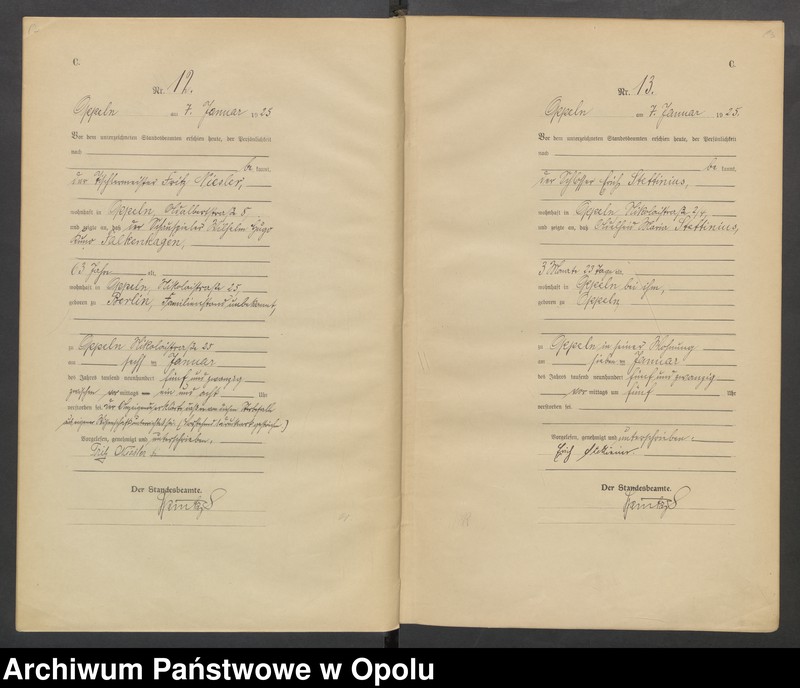 C.
Nr. 12.
Oppeln am 7. Januar 1925
Vor dem unterzeichneten Standesbeamten erschien heute, der Persönlichkeit
nach
be kannt,
der Tischlermeister Fritz Niesler,
wohnhaft in Oppeln, 5
und zeigte an, daß der Schauspieler Wilhelm Hugo
Kuno Falkenhagen,
63 Jahre alt,
wohnhaft in Oppeln, Nikolaistraße 25,
geboren zu Berlin, Familienstand unbekannt,
zu Oppeln Nikolaistraße 25
am sechs ten Januar
des Jahres tausend neunhundert fünf und zwanzig
zwischen vor mittags ein und acht Uhr
verstorben sei. Der Anzeigende erklärte,
Vorgelesen, genehmigt und unterschrieben.
Fritz Niesler
Der Standesbeamte.
C.
Nr. 13.
Oppeln am 7. Januar 1925.
Vor dem unterzeichneten Standesbeamten erschien heute, der Persönlichkeit
nach
be kannt,
der Schlosser Erich Stettinius,
wohnhaft in Oppeln, Nikolaistraße
und zeigte an, daß Maria Stettinius,
3 Monate 23 Tage alt,
wohnhaft in Oppeln bei ihm,
geboren zu Oppeln
zu Oppeln in seiner Wohnung
am sieben ten Januar
des Jahres tausend neunhundert fünf und zwanzig
vor mittags um fünf Uhr
verstorben sei.
Vorgelesen, genehmigt und unterschrieben.
Erich
Der Standesbeamte.
Archiwum Państwowe w Opolu